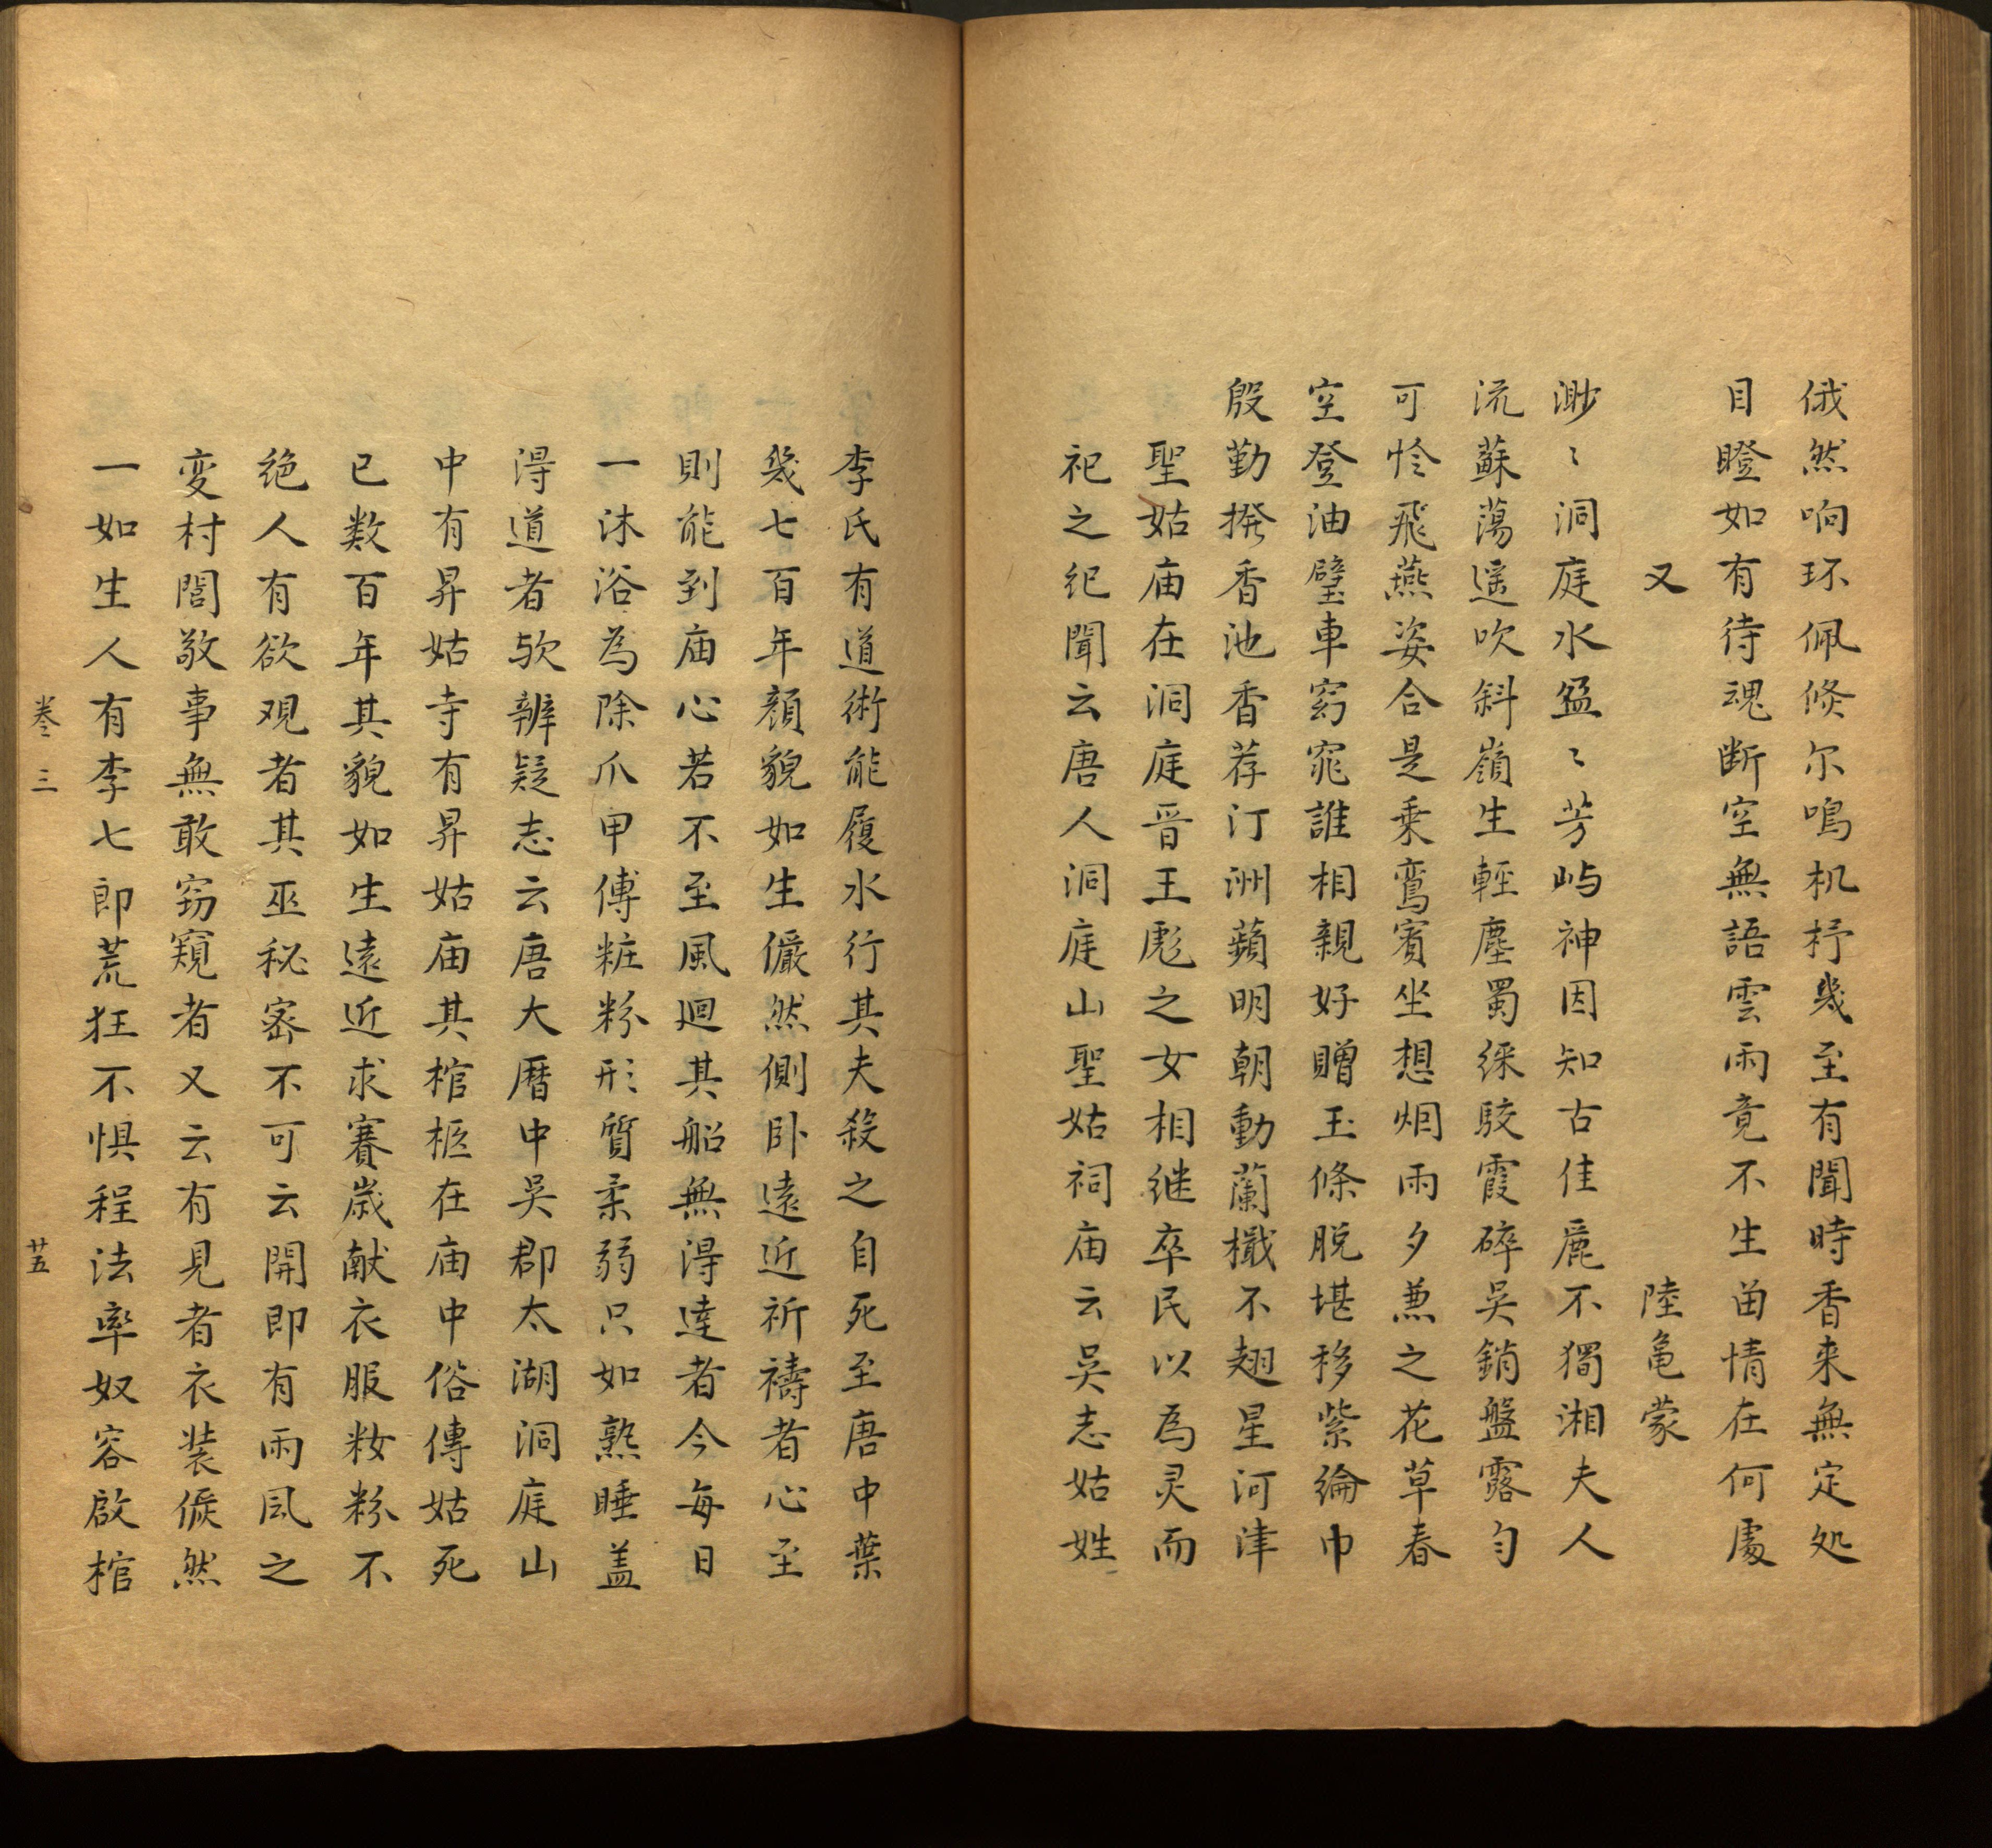 俄然响环佩倏尔鳴机杼幾至有聞時香来無定処
目瞪如有待魂断空無語雲雨竟不生畄情在何處
又
陸亀蒙
渺〻洞庭水盈〻芳屿神因知古佳麗不獨湘夫人
流蘇蕩遥吹斜嶺生輕塵蜀綵駮霞碎吳銷盤露勻
可怜飛燕姿合是乗鸞賓坐想烟雨夕兼之花草春
空登油壁車窈窕誰相親好贈玉條脱堪移紫綸巾
殷勤撥香池香荐汀洲蘋明朝動蘭檝不翅星河津
聖姑庙在洞庭晋王彪之女相継卒民以為灵而
祀之纪聞云唐人洞庭山聖姑祠庙云吳志姑姓
李氏有道術能履水行其夫殺之自死至唐中葉
幾七百年顏貌如生儼然側卧遠近祈禱者心至
則能到庙心若不至風廻其船無淂達者今每日
一沐浴為除爪甲傅粧粉形質柔弱只如熟睡盖
淂道者欤辨疑志云唐大曆中吳郡太湖洞庭山
中有昇姑寺有昇姑庙其棺柩在庙中俗傳姑死
已数百年其貌如生遠近求賽歲献衣服妆粉不
绝人有欲观者其巫秘宻不可云開即有雨风之
变村閭敬事無敢窃窺者又云有見者衣裝儼然
一如生人有李七郎荒狂不惧程法率奴客啟棺
卷三
廿五